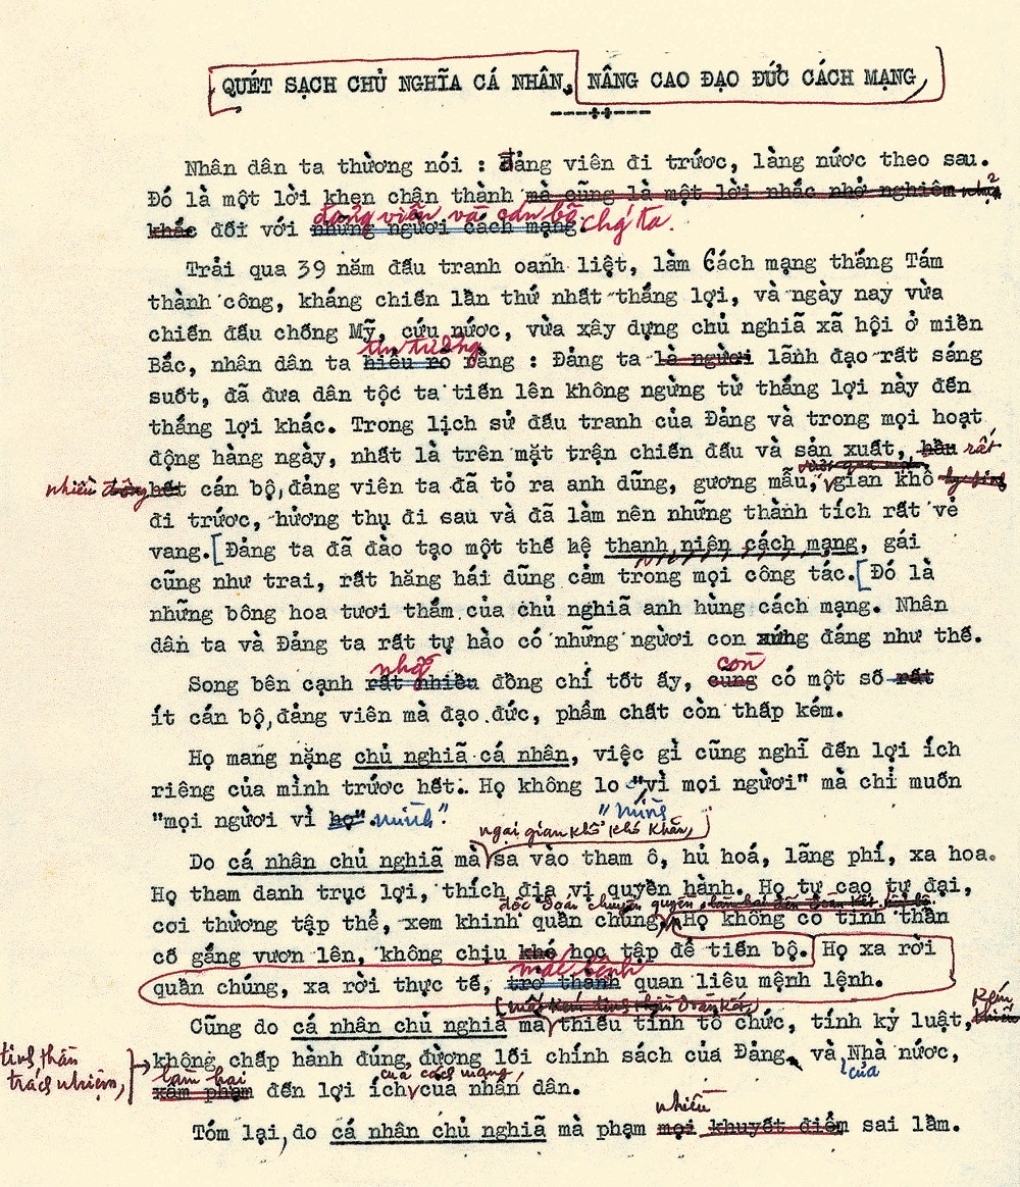 QUÉT SẠCH CHỦ NGHĨA CÁ NHÂN, NÂNG CAO ĐẠO ĐỨC CÁCH MẠNG
Nhân dân ta thường nói : đảng viên đi trước, làng nước theo sau.
Đó là một lời khen chận thành mà cũng là một lời nhắc nhở nghiêm
đảng viên và cán bộ chúng ta.
khắc đối với những người cách mạng.
Trải qua 39 năm đấu tranh oanh liệt, làm Cách mạng tháng Tám
thành công, kháng chiến lần thứ nhất thắng lợi, và ngày nay vừa
chiến đấu chống Mỹ, cứu nước, vừa xây dựng chủ nghiã xã hội ở miền
tin tưởng
Bắc, nhân dân ta hiểu rõ rằng : Đảng ta là người lãnh đạo rất sáng
suốt, đã đưa dân tộc ta tiến lên không ngừng từ thắng lợi này đến
thắng lợi khác. Trong lịch sử đấu tranh của Đảng và trong mọi hoạt
động hàng ngày, nhất là trên mặt trận chiến đấu và sản xuất, hầu rất
nhiều hết cán bộ, đảng viên ta đã tỏ ra anh dũng, gương mẫu, gian khổ
đi trước, hưởng thụ đi sau và đã làm nên những thành tích rất vẻ
vang. [Đảng ta đã đào tạo một thế hệ thanh niên cách mạng, gái
cũng như trai, rất hăng hái dũng cảm trong mọi công tác. [Đó là
những bông hoa tươi thắm của chủ nghiã anh hùng cách mạng. Nhân
dân ta và Đảng ta rất tự hào có những người con xứng đáng như thế.
những còn
Song bên cạnh rất nhiều đồng chí tốt ấy, cũng có một số rất
ít cán bộ, đảng viên mà đạo đức, phẩm chất còn thấp kém.
Họ mang nặng chủ nghiã cá nhân, việc gì cũng nghĩ đến lợi ích
riêng của mình trước hết. Họ không lo "vì mọi người" mà chỉ muốn
"mình
"mọi người vì họ". mình".
ngại gian khổ khó khăn,
Do cá nhân chủ nghiã mà sa vào tham ô, hủ hoá, lãng phí, xa hoa.
Họ tham danh trục lợi, thích địa vị quyền hành. Họ tự cao tự đại,
độc đoán chuyên quyền
coi thường tập thể, xem khinh quần chúng, Họ không có tinh thần
cố gắng vươn lên, không chịu khó học tập để tiến bộ. Họ xa rời
mắc bệnh
quần chúng, xa rời thực tế, trở thành quan liêu mệnh lệnh.
Cũng do cá nhân chủ nghiã mà thiếu tính tổ chức, tính kỷ luật, kém
tinh thần
trách nhiệm,
không chấp hành đúng đường lối chính sách của Đảng và Nhà nước,
của
làm hại của cách mạng,
xâm phạm đến lợi ích của nhân dân.
nhiều
Tóm lại, do cá nhân chủ nghiã mà phạm mọi khuyết điểm sai lầm.